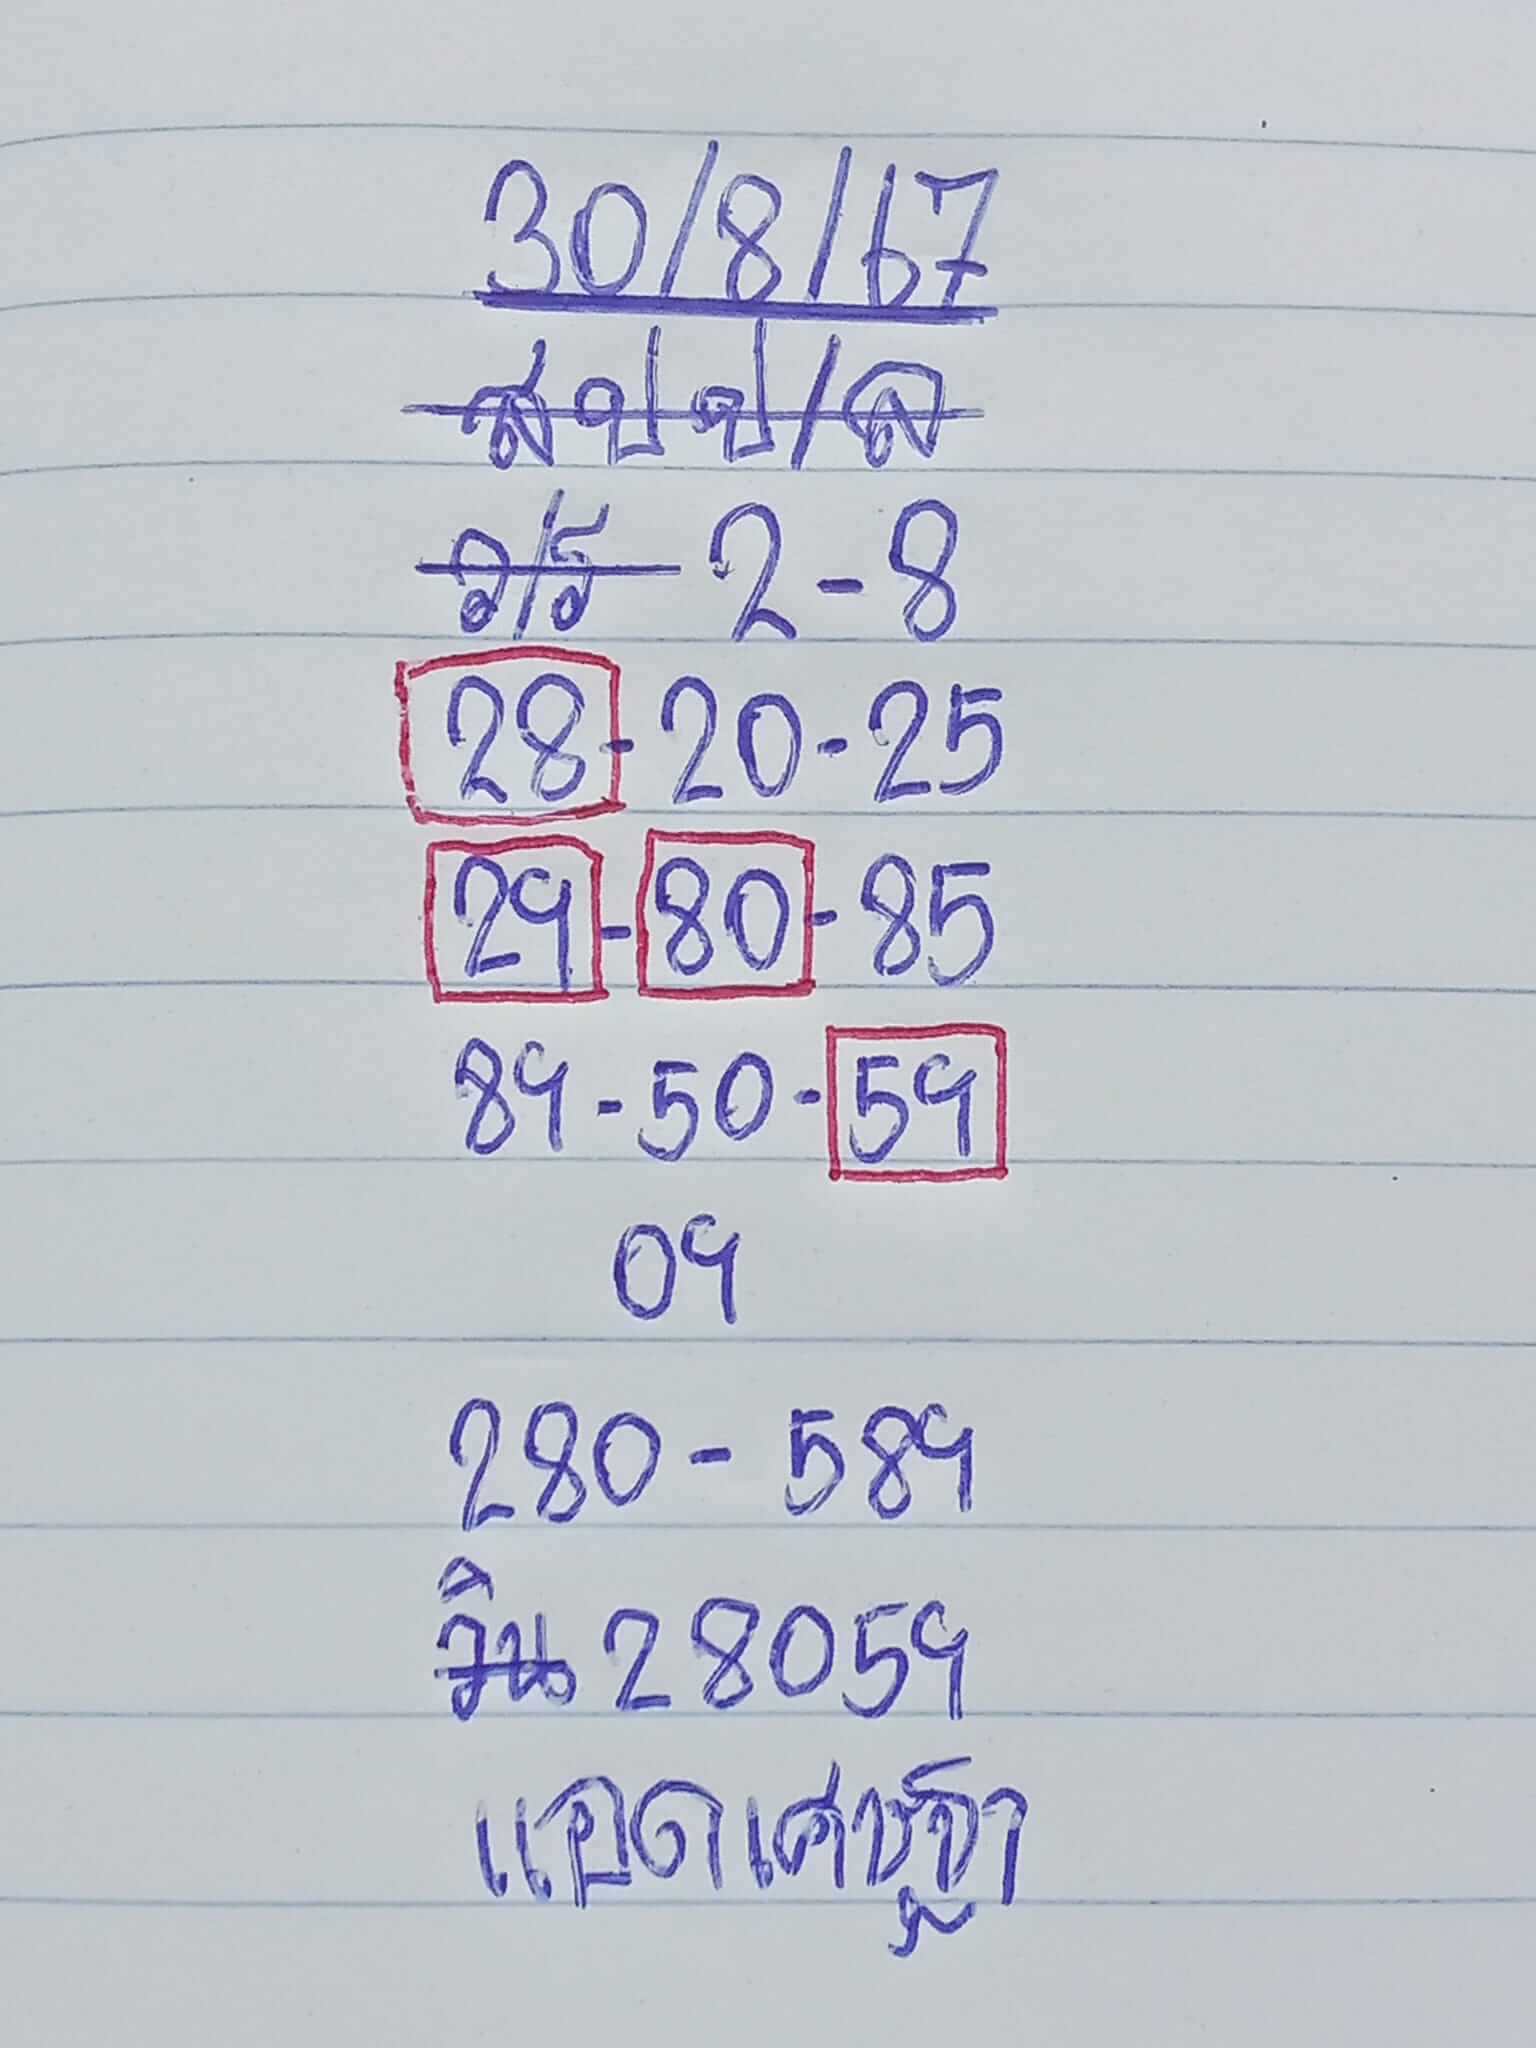 30/8/67
สปป/ล
ว/ร 2-8
28-20-25
29-80-85
89-50-59
09
280-589
วิน 28059
แอดเศรษฐา